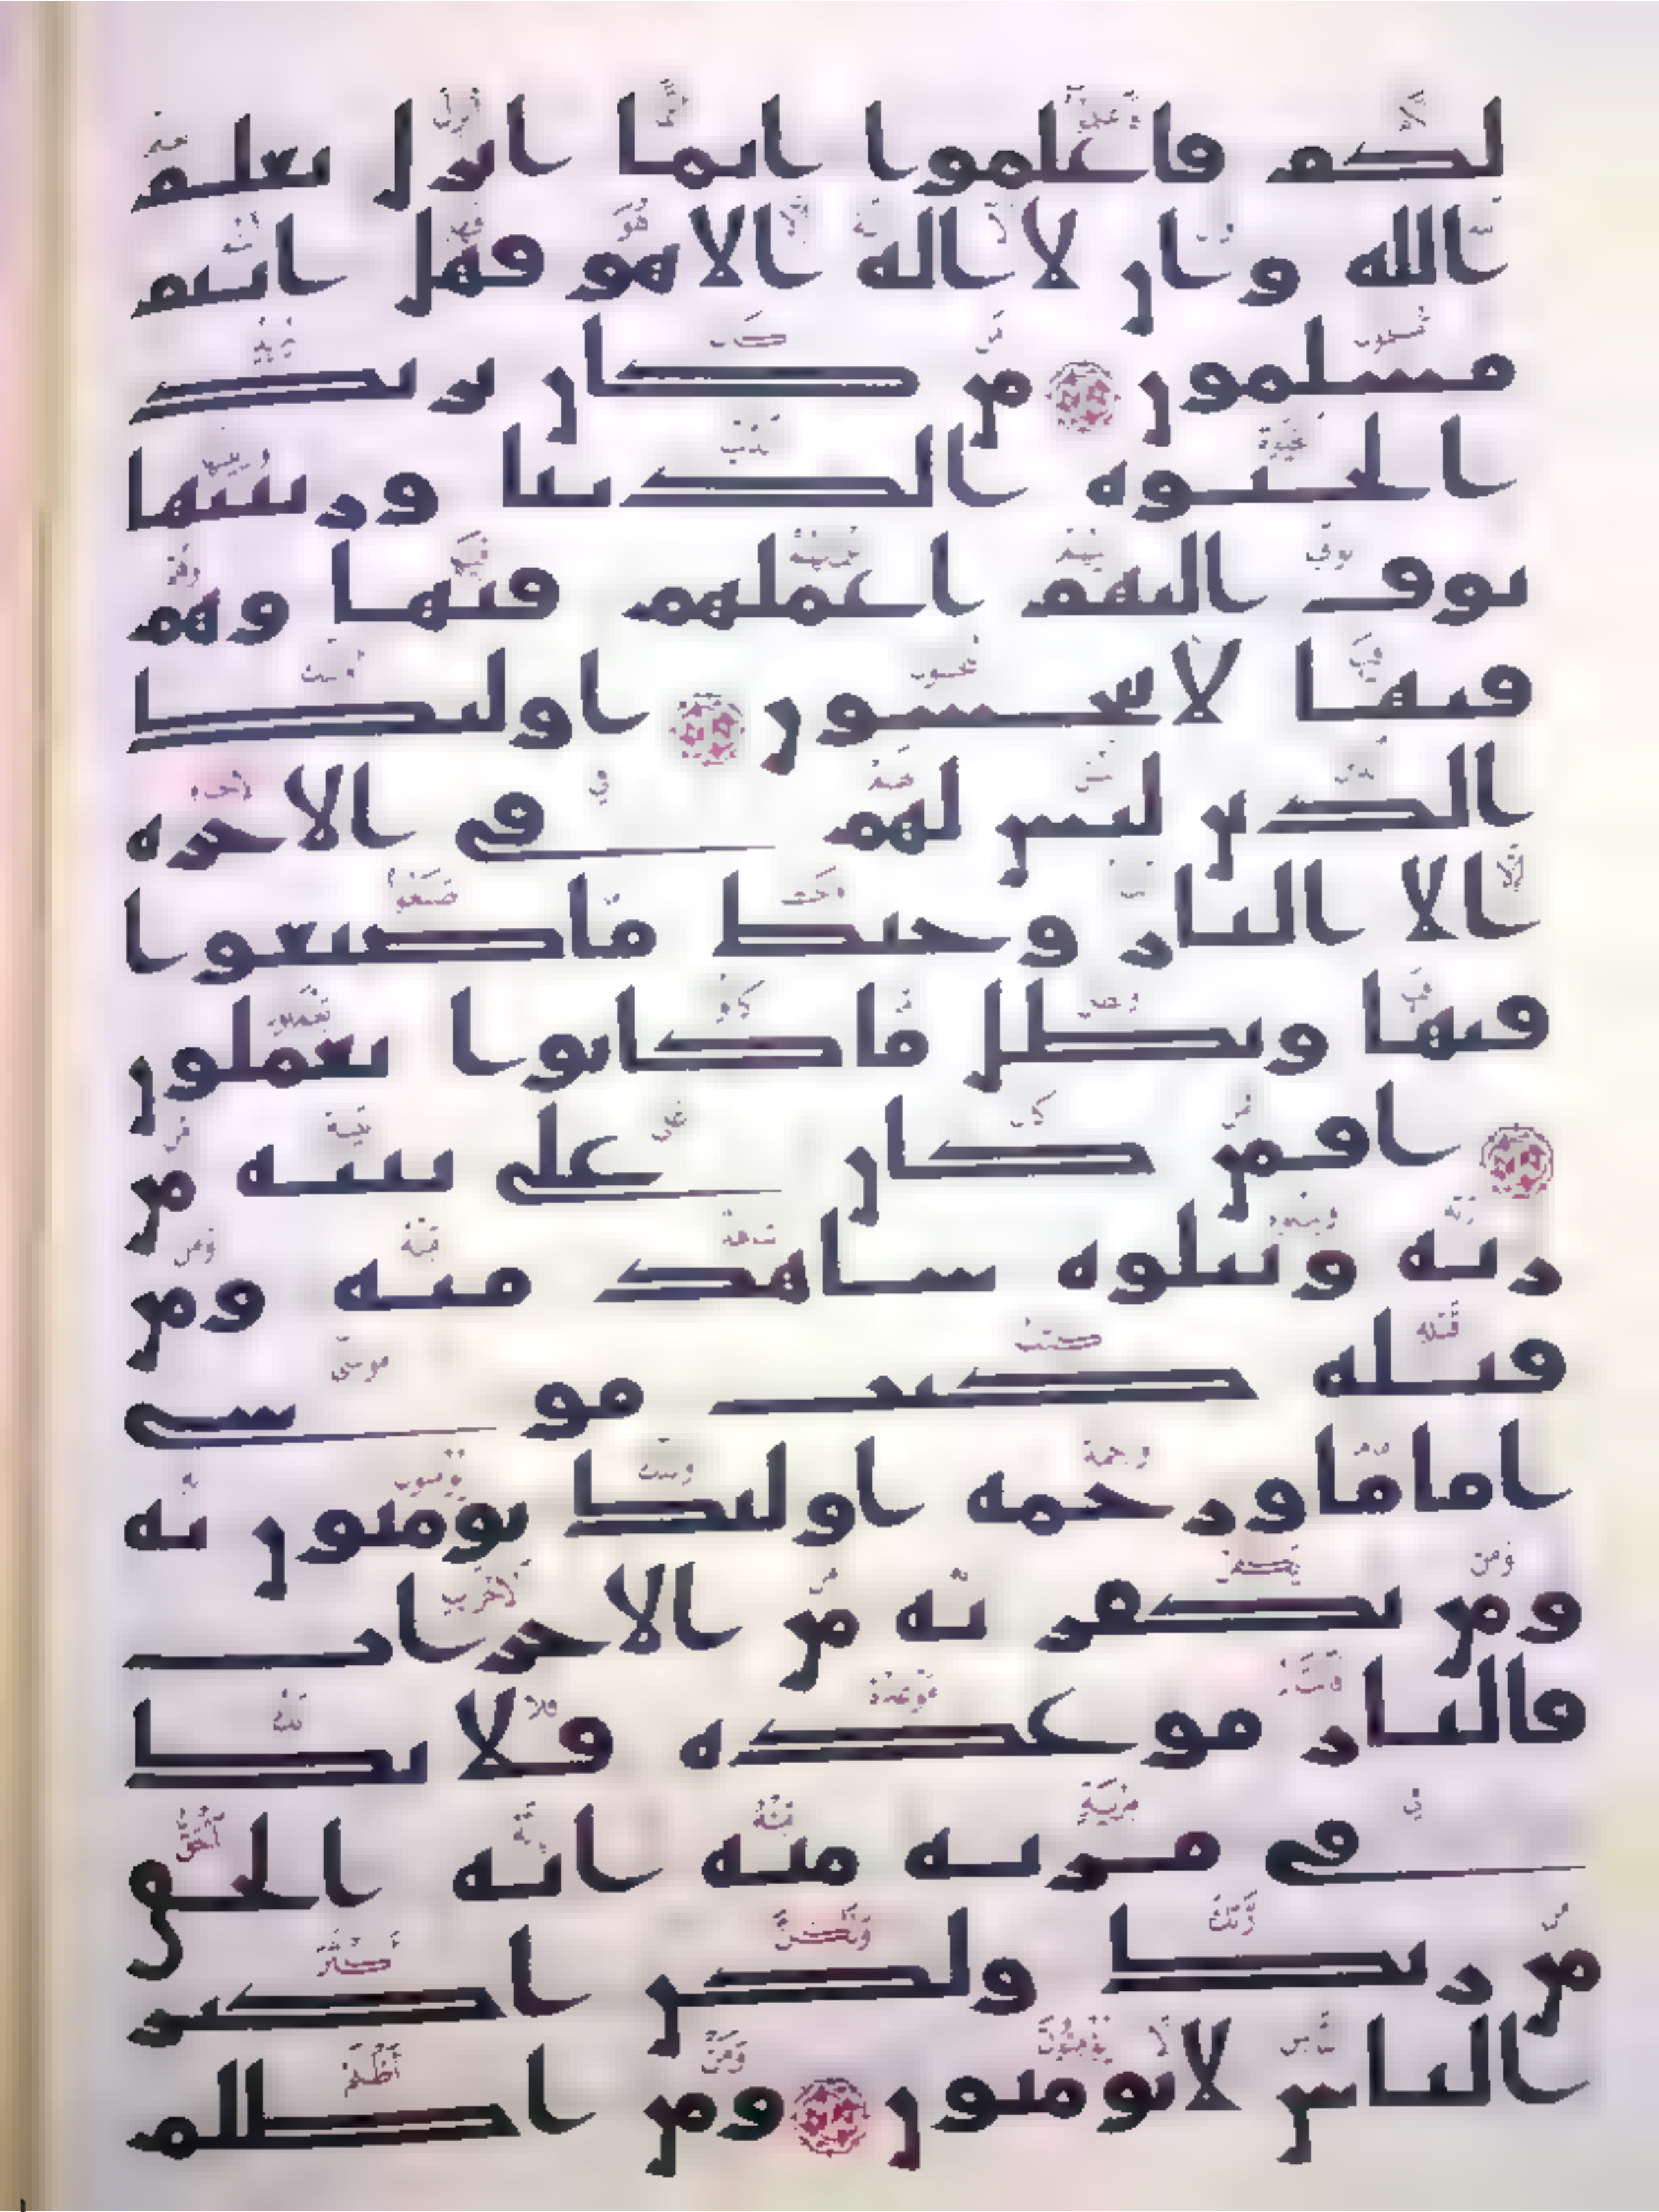 لكم فاعلموا انما انزل بعلم
الله وان لا اله الا هو فهل انتم
مسلمون من كان يريد
الحيوة الدنيا وزينتها
نوف اليهم اعملهم فيها وهم
فيها لا يبخسون اولئك
الذين ليس لهم في الاخرة
الا النار وحبط ما صنعوا
فيها وبطل ما كانوا يعملون
افمن كان على بينة من
ربه ويتلوه شاهد منه ومن
قبله كتب موسى
اماما ورحمة اولئك يومنون به
ومن يكفر به من الاحزاب
فالنار موعده فلا تك
في مرية منه انه الحق
من ربك ولكن اكثر
الناس لا يومنون ومن اظلم